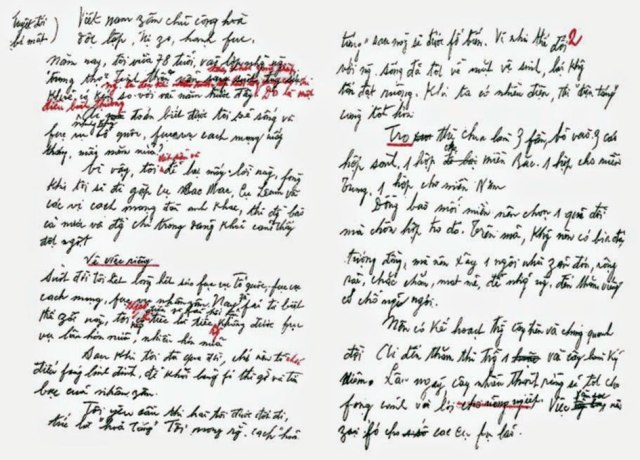 Tuyệt đối
bí mật
Việt nam zân chủ cộng hoà
độc lập, tự zo, hạnh fúc.
Năm nay, tôi vừa 78 tuổi, vào lớp những người
trung thọ. Tinh thần
khoẻ có kém so với vài năm trước đây. Đó là một
điều bình thường.
đoán biết được tôi sẽ sống và
fục vụ Tổ quốc, fục vụ cách mạng mấy
tháng, mấy năm nữa?
Vì vậy, tôi để lại mấy lời này, fòng
khi tôi sẽ đi gặp cụ Các Mác, Cụ Lênin và
các vị cách mạng đàn anh khác, thì đồng bào
cả nước và đồng chí trong Đảng khỏi cảm thấy
đột ngột.
Về việc riêng
Suốt đời tôi hết lòng hết sức fục vụ Tổ quốc, fục vụ
cách mạng, fục vụ nhân zân. Nay zù fải từ biệt
thế zới này, tôi
tiếc là tiếc không được fục
vụ lâu hơn nữa, nhiều hơn nữa.
Sau khi tôi đã qua đời, chớ nên tổ chức
điếu fúng linh đình, để khỏi lãng fí thì zờ và tiền
bạc của nhân zân.
Tôi yêu cầu thi hài tôi được đốt đi,
tức là "hoả táng". Tôi mong rằng cách "hoả
2
táng" sau này sẽ được fổ biến. Vì như thế đối
với người sống đã tốt về mặt vệ sinh, lại không
tốn đất ruộng. Khi ta có nhiều điện, thì "điện táng"
càng tốt hơn.
Tro thì chia làm 3 fần, bỏ vào 3 cái
hộp sành, 1 hộp cho miền Bắc. 1 hộp cho miền
Trung, 1 hộp cho miền Nam
Đồng bào mỗi miền nên chọn 1 quả đồi
mà chôn hộp tro đó. Trên mả, không nên có bia đá
tượng đồng, mà nên xây 1 ngôi nhà zản đơn, rộng
rãi, chắc chắn, mát mẻ, để những người đến thăm viếng
có chỗ nghỉ ngơi.
Nên có kế hoạch trồng cây trên và chung quanh
đồi. Ai đến thăm thì trồng 1 vài cây làm kỷ
niệm. Lâu ngày, cây nhiều thành rừng sẽ tốt cho
fong cảnh và lợi cho nông nghiệp. Việc
nên zao fó cho các Cụ fụ lão.